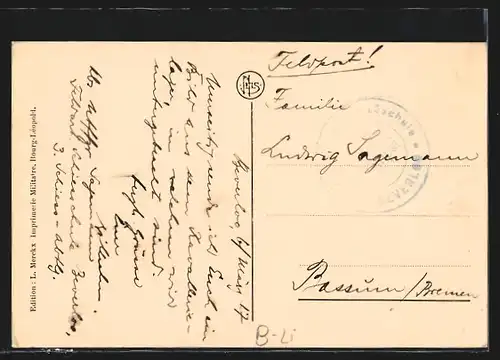 Feldpost!
Familie
Ludwig Sagemann
Bassum/Bremen
Beverloo, 6/März 17
Umseitig sende ich Euch ein
Bild aus dem Kavallerie-
lager, in welchem wir
untergebracht sind.
Herzl. Grüsse
Euer
Wilhelm
Abs. Uffz. Sagemann
Feldart. Schiesschule Beverloo,
3. Schiess-Abtlg.
Edition: L. Merckx Imprimerie Militaire, Bourg-Léopold.
B-Li